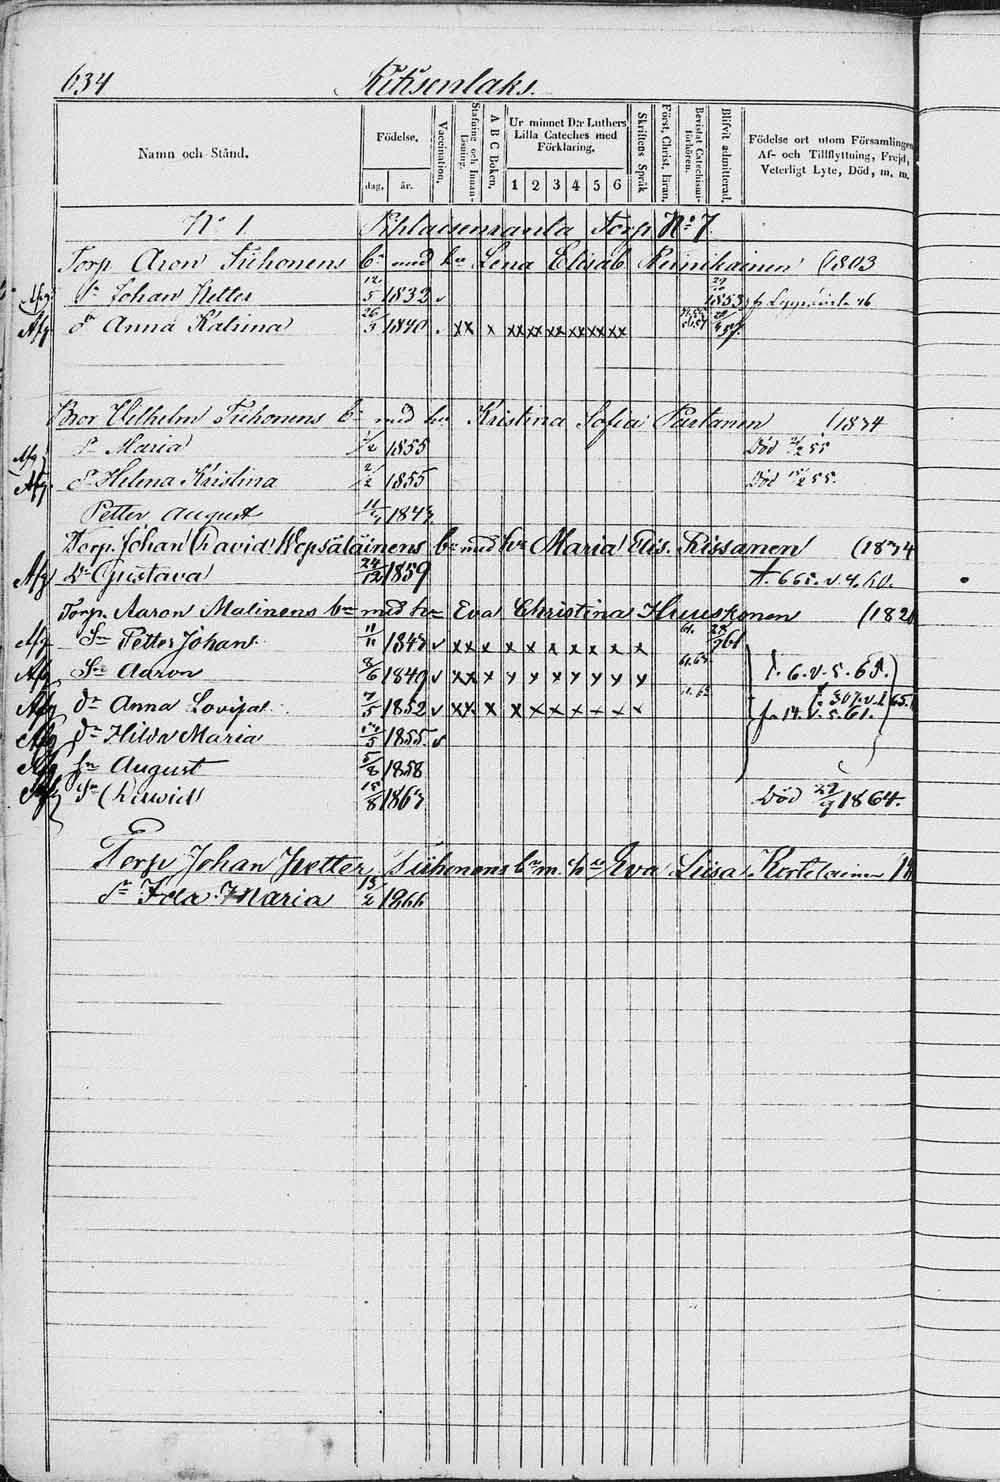 634 Kitisenlaks.
Namn och Stånd. Födelse. dag. år. Vaccination. Stafning och Innan-läsning. A B C Boken. Ur minnet D:r Luthers Lilla Cateches med Förklaring. 1 2 3 4 5 6 Skriftens Språk Först. Christ. läran. Bevistat Catechismi-förhören. Blifvit admitterad. Födelse ort utom Församlingen, Af- och Tillflyttning, Frejd, Veterligt Lyte, Död, m. m.
No 1 Torp No 7
Torp. Aron Tiihonens bn med hu Lena Elisab Reinikainen (1803
Afg. Sn Johan Petter 12/5 1832 v 1853
Afg dr Anna Katrina 26/5 1840 . xx x xx xx xx xx xx xx
Bror Vilhelm Tiihonens bn med hu Kristina Sofia Partanen (1834
Afg. dr Maria 1/2 1855 Död 21/2 55
Afg. dr Helena Kristina 2/2 1855 Död 15/2 55.
Petter August 1847
Torp. Johan David Wepsäläinens bn med hu Maria Elis. Rissanen (1834
Afg Dr Gustava 24/12 1859 t. 665. v. 4. 60.
Torp. Aaron Malinens bn med hu Eva Christina Huuskonen (182
Afg Sn Petter Johan 11/11 1847 v xx x x x x x x x 61. 28/9 61
Afg Sn Aaron 8/6 1849 v xx x x x x x x x 61.63 t. 6. v. 5. 65.
Afg dr Anna Lovisa 7/5 1852 v xx x x x x x x x t. 307. v. 1 65.
fr 14. v. 5. 61.
Afg dr Hilda Maria 1855. v
Afg Sn August 5/8 1858
Afg Sn 15/8 1863 Död 22/9 1864.
Torp Johan Petter Tiihonens bn m. hu Eva Liisa Kortelainen 18
dr Ida Maria 13/2 1866